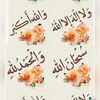 والله أكبر
ولا إله إلا الله
والحمد لله
سبحان الله